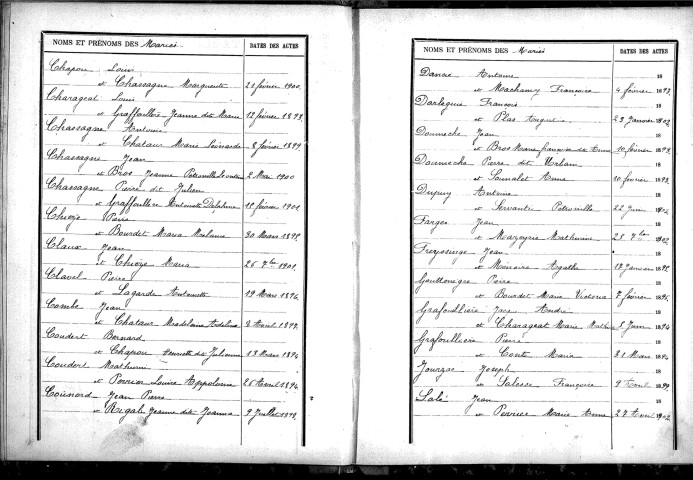 NOMS ET PRÉNOMS DES Mariés
DATES DES ACTES
Chapon Louis
et Chassagne Marguerite 28 février 1900
Charageat Louis
et Graffoullère Jeanne dite Marie 12 février 1893
Chassagne Antoine
et Chataur Marie Léonarde 8 février 1899
Chassagne Jean
et Bros Jeanne 2 Mai 1900
Chassagne Pierre dit Julien
et Graffoullère Antoinette Delphine 18 février 1901
Chièze Pierre
et Bourdet Maria Melanie 30 Mars 1898
Claux Jean
et Chièze Maria 26 7bre 1901
Clavel Pierre
et Lagarde Antoinette 19 Mars 1896
Combe Jean
et Chataur Madelaine Adeline 8 Avril 1899
Coudert Bernard
et Chapon Henriette dite Julienne 13 Mars 1894
Coudert Mathurin
et Perrier Louise Appolonie 26 Avril 1894
Coisnord Jean Pierre
et Rigal Jeanne dite Joanna 9 Juillet 1898
NOMS ET PRÉNOMS DES Mariés
DATES DES ACTES
Danse Antoine 18
et Machamy Françoise 4 février 1893
Darlegue François 18
et Plas 23 Janvier 1902
Doumeche Jean 18
et Bros Marie françoise dite Anna 10 février 1893
Doumeche Pierre dit Urbain 18
et Soumalet Anna 10 février 1893
Dupuy Antoine 18
et Servante Petronille 22 Juin 1902
Farges Jean 18
et Mazeyrie Mathurine 25 7bre 1902
Freyssinge Jean 18
et Minoire Agathe 18 Janvier 1895
Gouttenègre Pierre 18
et Bourdet Marie Victoria 7 février 1895
Grafoullière Jean André 18
et Charageat Marie 5 Juin 1894
Grafoullière Pierre 18
et Conte Maria 31 Mars 1894
Jourzac Joseph 18
et Salesse Françoise 9 Avril 1899
Salé Jean 18
et Perrier Marie Anna 27 Avril 1902